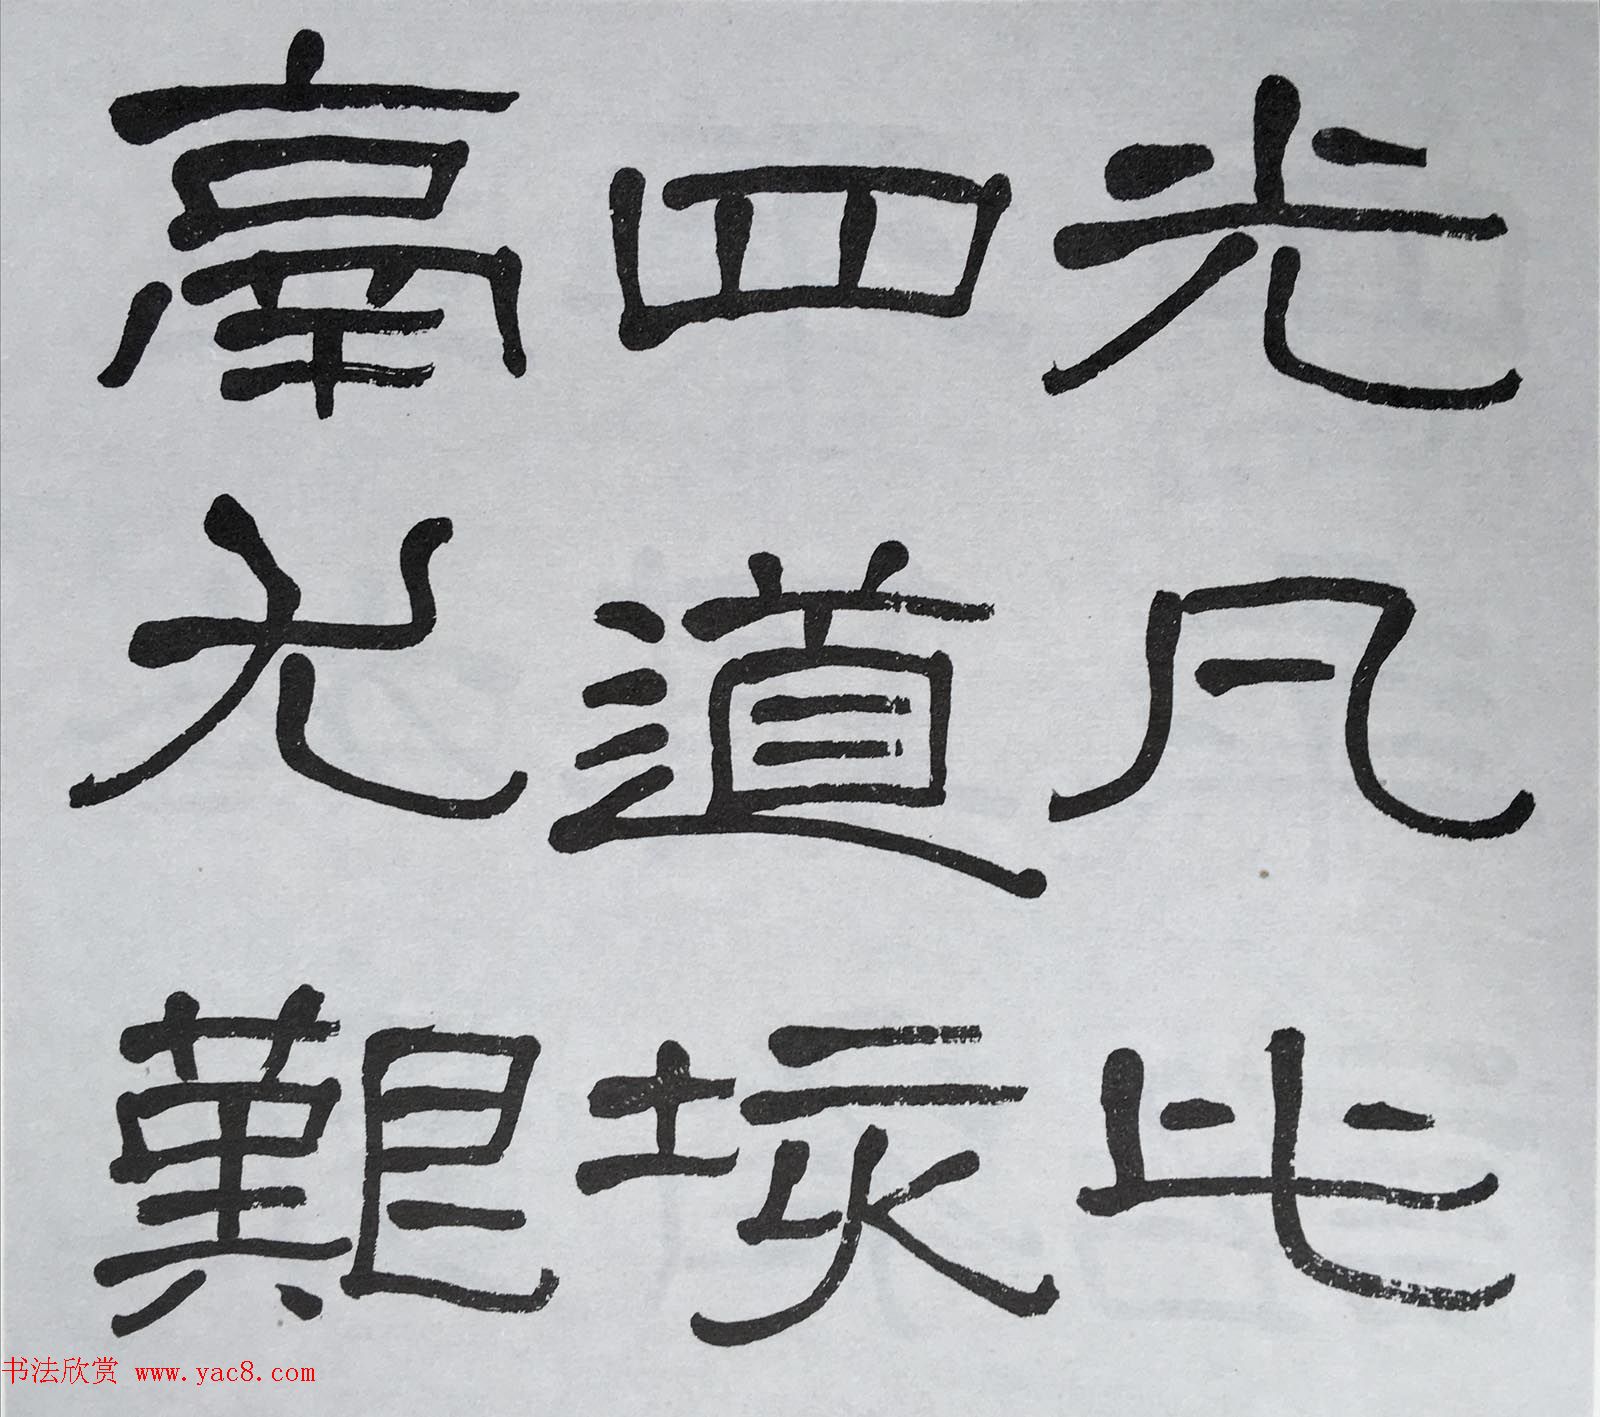 光凡此
四道垓
鬲尤艱
书法欣赏 www.yac8.com